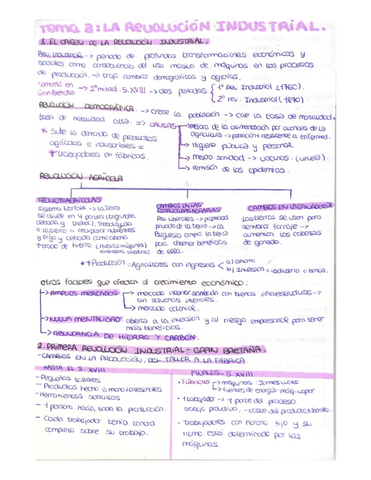 Tema 3: LA REVOLUCIÓN INDUSTRIAL.
1. EL ORIGEN DE LA REVOLUCIÓN INDUSTRIAL.
Rev. Industrial → periodo de profundas transformaciones económicas y
sociales como consecuencia del uso masivo de máquinas en los procesos
de producción → trajo cambios demográficos y agrarios.
Comenzó en Gran Bretaña → 2ª mitad S. XVIII → dos periodos 1ª Rev. Industrial (1760).
2ª rev. Industrial (1870)
REVOLUCIÓN DEMOGRÁFICA → crece la población → cae la tasa de mortalidad
tasa de natalidad alta → CAUSAS → mejora de la alimentación por avances de la
agricultura → población resistente a enfermed.
* Sube la demanda de productos
agrícolas e industriales =
+ trabajadores en fábricas.
→ Higiene pública y personal.
→ mejor sanidad → vacunas (viruela)
→ remisión de las epidemias.
REVOLUCIÓN AGRÍCOLA
CAMBIOS EN LA GANADERÍA
Sistema Norfolk → la tierra
se divide en 4 partes
y trigo y cebada como abono
Rev. liberales → propiedad
privada de la tierra → la
burguesía compra la tierra
para obtener beneficios
de ella.
Los barbechos se usan para
sembrar forraje →
aumentan las cabezas
de ganado.
* + Producción = Agricultores con ingresos a) ahorro
b) inversión = industria o banca.
Otros factores que afectan al crecimiento económico:
→ AMPLIOS MERCADOS → mercado interior conectado con buenas infraestructuras →
sin aduanas interiores.
→ mercado colonial.
→ NUEVA MENTALIDAD: abierta a la inversión y al riesgo empresarial para tener
más beneficios.
→ ABUNDANCIA DE HIERRO Y CARBÓN.
2. PRIMERA REVOLUCIÓN INDUSTRIAL - GRAN BRETAÑA.
- CAMBIOS EN LA PRODUCCIÓN: DEL TALLER A LA FÁBRICA
HASTA EL S. XVIII
- Pequeños talleres
- Productos hecho a mano/artesanales
- Herramientas sencillas
- 1 persona hacía toda la producción.
- Cada trabajador tenía control
completo sobre su trabajo.
FINALES S. XVIII
- Fábricas → máquinas: James Watt
→ fuentes de energía: máq. vapor
- 1 trabajador → 1 parte del proceso.
trabajo + productivo, - coste del producto + barato.
- Trabajadores con horario fijo y su
ritmo está determinado por las
máquinas.